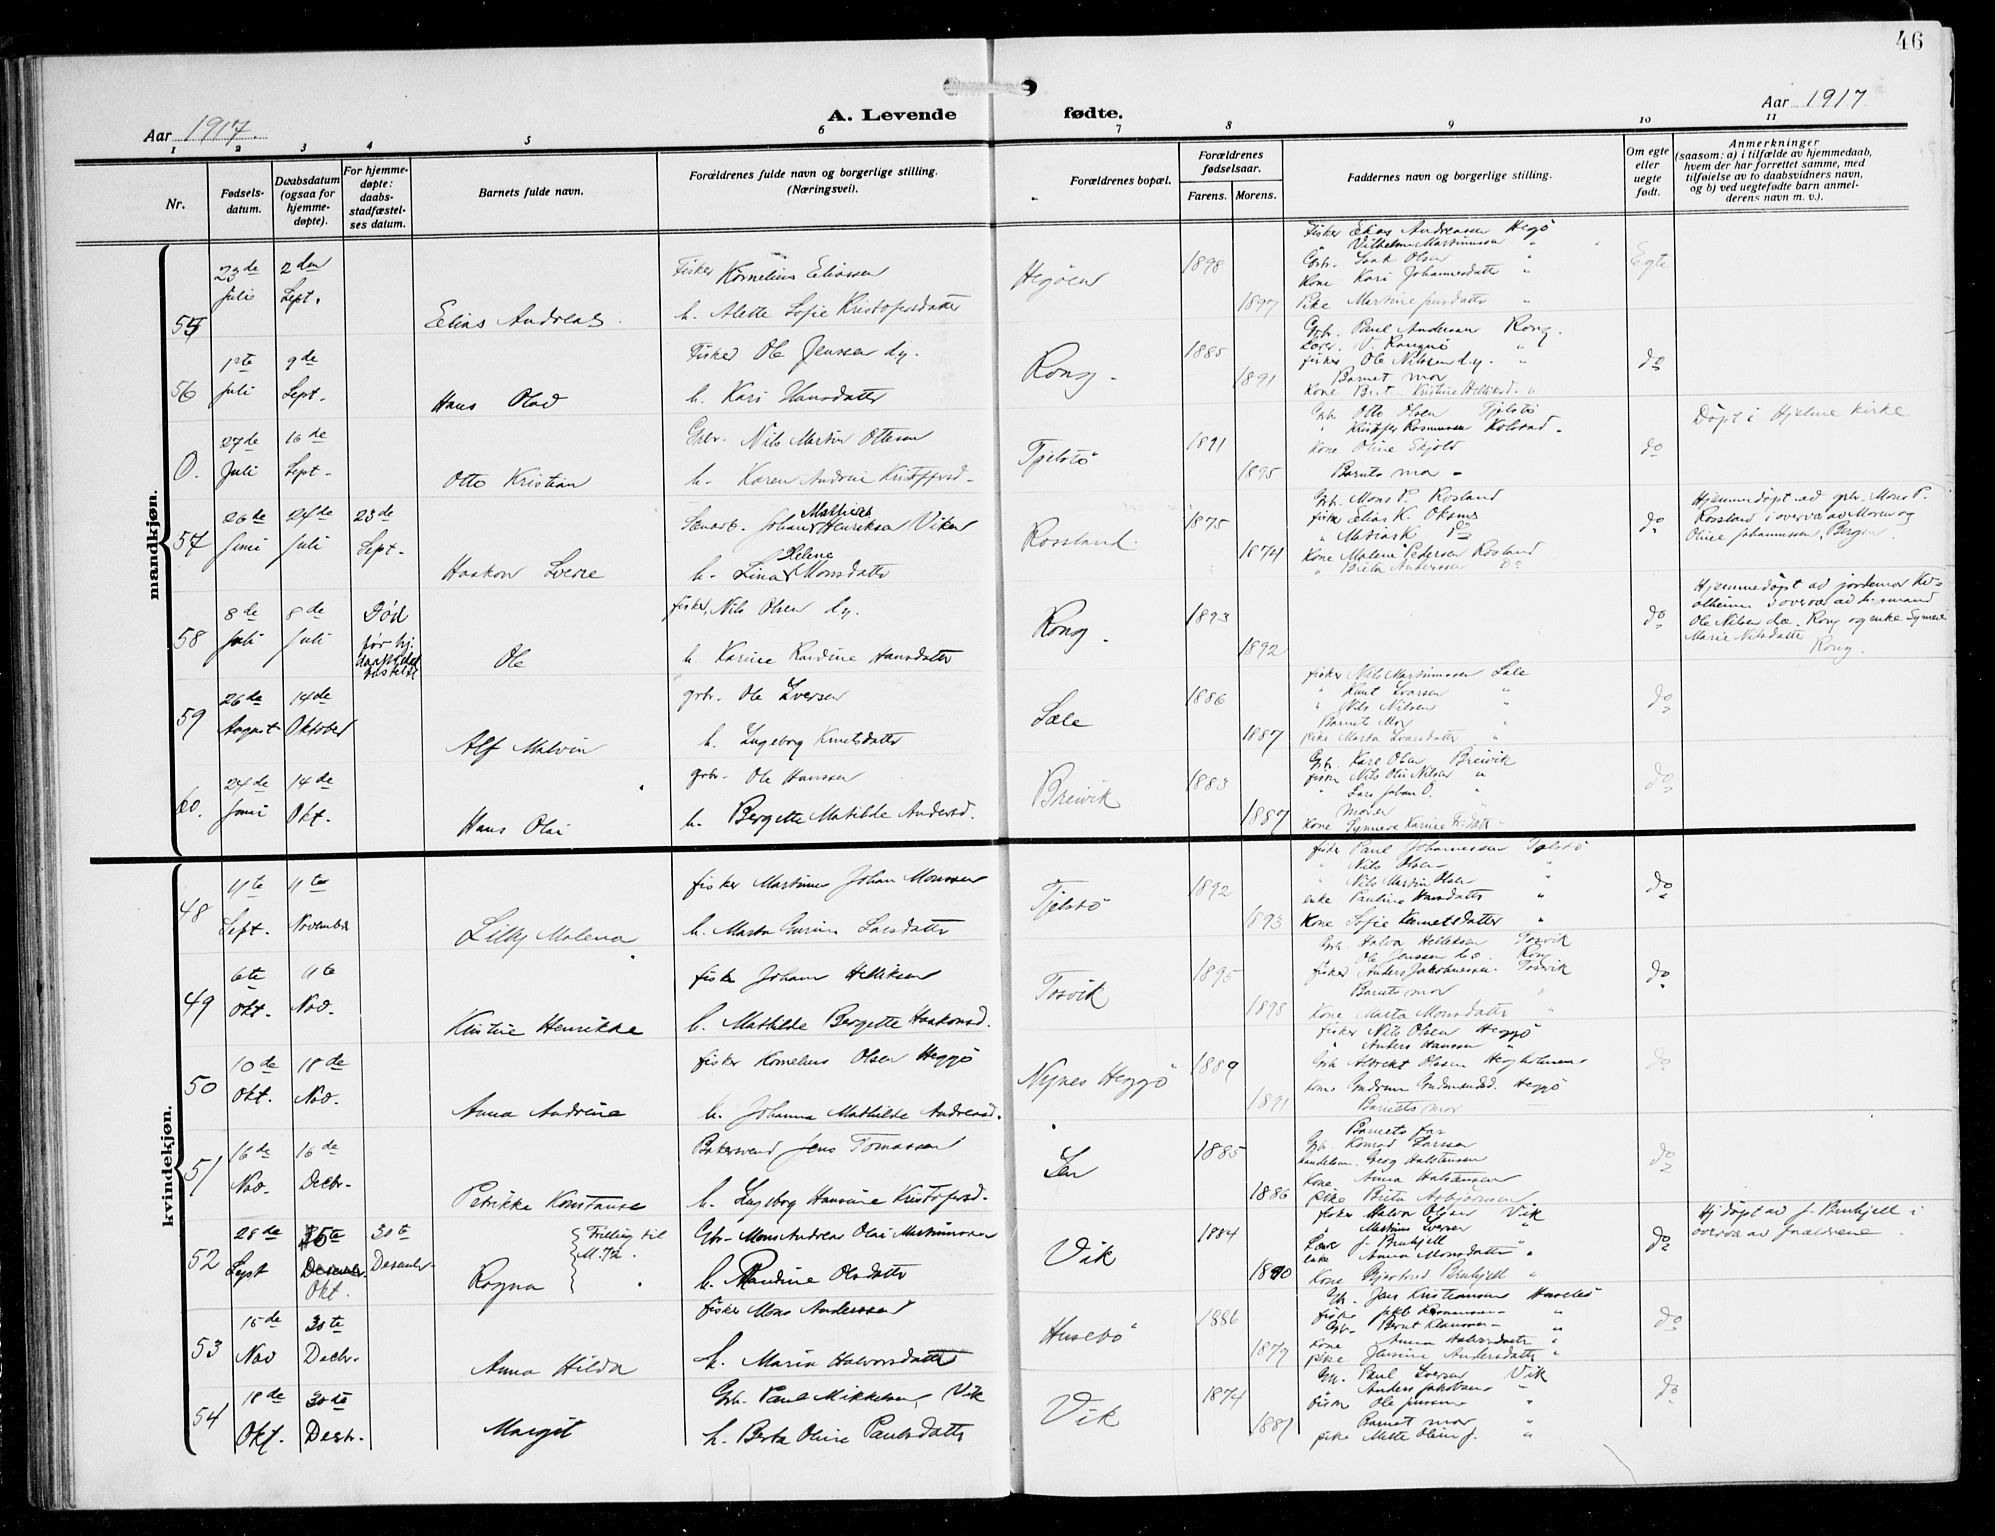 46
Aar 1917.
A. Levende
fødte.
Aar 1917
1 2 3 4 5 6 7 8 9 10 11
Nr.
Fødsels-
datum.
Daabsdatum
(ogsaa for
hjemme-
døpte).
For hjemme-
døpte:
daabs-
stadfæstel-
ses datum.
Barnets fulde navn.
Forældrenes fulde navn og borgerlige stilling.
(Næringsvei).
Forældrenes bopæl.
Forældrenes
fødselsaar.
Farens. Morens.
Faddernes navn og borgerlige stilling.
Om egte
eller
uegte
født.
Anmerkninger
(saasom: a) i tilfælde av hjemmedaab,
hvem der har forrettet samme, med
tilføielse av to daabsvidners navn,
og b) ved uegtefødte barn anmel-
derens navn m. v.).
mandkjøn.
55 23de Juli 2den Sept. Elias Andreas
Fisker Kornelius Eliassen
h. Alette Sofie Kristofersdatter
Hegöen 1898 1897
Fisker Elias Andreassen Hegö
Vilhelm Martinussen "
Gbr. Isak Olsen "
Kone Kari Johannesdatter "
Pike Martine "
Egte
56 1ste Juli 9de Sept. Hans Olav
Fisker Ole Jenssen dy.
h. Kari Hansdatter
Rong. 1885 1891
Gbr. Paul Anderssen Rong.
Lærer V. Rongnö "
fisker Ole Nilssen dy. "
Barnet mor
Kone Brita Kristine "
do
0. 27de Juli 16de Sept. Otto Kristian
Gbr. Nils Martin Ottesen
h. Karen Andrine
Tjelstö 1891 1895
Gbr. Otto Olsen Tjelstö
" Kristofer Rasmussen Kolsrad.
Kone Oline Skjold
Barnets mor
do
Døpt i Hjelme kirke
57 26de Juni 24de Juli 23de Sept. Haakon Sverre
Johan Mathias Henriksen Viken
h. Lina Helene Monsdatter
Rossland. 1875 1874
Gbr. Mons P. Rosland
fisker Elias K. Oksnes
" Matias K. do
Kone Malene Pedersen Rosland
" Brita Anderssen do
do
Hjemmedøpt ad gbr. Mons P.
Rossland i overvær av Moren og
Oline Johannessen, Bergen.
58 8de Juli 8de Juli Død
før hj.
Ole
fisker, Nils Olsen dy.
h. Karine Randine Hansdatter
Rong. 1893 1892
do
Hjemmedøpt ad jordemor
i overvær ad
Ole Nilsen Rong og enke
Marie Nilsdatter
Rong.
59 26de August 14de Oktober Alf Malvin
gbr. Ole Iversen
h. Ingeborg Knutsdatter
Sæle 1886 1887
fisker Nils Martinussen Sæle
" Knut Ivarsen "
" Nils Nilsen "
Barnet Mor
pike Marta Ivarsdatter "
do
60. 24de Juni 14de Okt. Hans Olai
gbr. Ole Hanssen
h. Bergette Matilde Andersd.
Breivik 1883 1887
Gbr. Karl Olsen Breivik
fisker Nils Olai Nilsen "
" Lars Johan O. "
moren
Kone Synneve Karine
do
kvindekjøn.
48 11te Sept. 11te November Lilly Malena
fisker Martinus Johan Monssen
h. Marta Larsdatter
Tjelstö 1892 1893
fisker Paul Johannessen Tjelstö
" Nils Olsen "
" Nils Martin Olsen "
enke Pauline Hansdatter "
Kone Sofie Knutsdatter "
do
49 6te Okt. 11te Nov. Kristine Henrikke
fisker Johan Helliksen
h. Mathilde Bergette Haakonsd.
Tosvik 1895 1898
Gbr. Halvor Helliksen Tosvik
Ole Jenssen Rong
fisker Anders Jakobnessen. Tosvik
Barnets mor
Kone Marta Monsdatter "
do
50 10de Okt. 18de Nov. Anna Andrine
fisker Kornelius Olsen Heggö
h. Johanna Mathilde Andreasd.
Nynes Heggö 1889 1891
fisker Nils Olsen Heggö
" Anders Hanssen "
Gbr. Albrekt Olssen Hegholmen
Kone Gudrun Gudmundsd. Heggö
Barnets mor
do
51 16de Nov. 16de Decbr. Petrikke Konstanse
Bakersvend Jens Tomassen
h. Ingeborg Hansine Kristofersd.
Sen 1885 1886
Barnets far
Gbr. Konrad Larssen
handelsm. Georg Halstensen
Kone Anna Halstensen
Pike Brita Asbjörnsen
do
52 28de Sept 15te Okt. 30te Desember Ragna
Trilling til
Gbr. Mons Andreas Olai Martinussen
h. Randine Olsdatter
Vik 1884 1890
fisker Halvor Olssen Vik
" Martinus Iversen "
Lærer J. Brukjell
enke Anna Monsdatter "
Kone Gjertrud Brukjell "
do
Hj døpt av J. Brukjell i
overvær av forældrene.
53 15de Nov 30te Decbr. Anna Hilda
fisker Mons Anderssen
h. Maria Halvorsdatter
Husebö 1886 1879
Gbr. Jens Kristiansen Husebö
fisker Rasmussen "
Gbr. Bernt Klaussen "
Kone Anna Halvorsdatter "
pike Jensine Andersdatter "
do
54 18de Okt. 30te Decbr. Margit
Gbr. Paul Mikkelsen, Vik
h. Berta Oline Paulsdatter
Vik 1874 1887
Gbr. Paul Iversen Vik
Anders Jakobsen "
fisker Ole Jenssen "
Barnet mor "
pike Mette Oline J. "
do